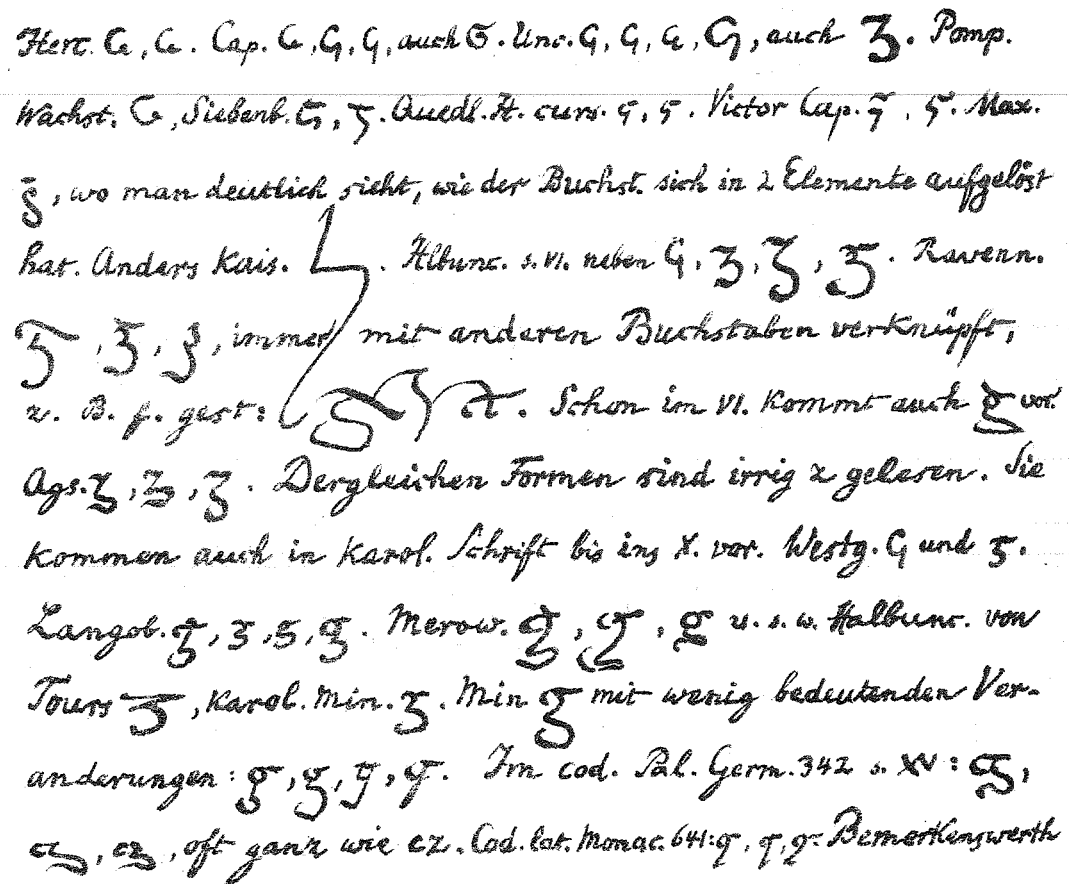 Herc. G, G. Cap. G, G, G, auch G. Unc. G, G, G, G, auch Ʒ. Pomp.
Wachst. G, Siebenb. G, ʒ. Quedl. It. curs. ς, ς. Victor Cap. ʒ, ʒ. Max.
ʒ, wo man deutlich sieht, wie der Buchst. sich in 2 Elemente aufgelöst
hat. Anders Kais. . Hlbunc. s. VI. neben G, ʒ, ʒ, ʒ. Ravenn.
ʒ, ʒ, ʒ, immer mit anderen Buchstaben verknüpft,
z. B. f. gest: . Schon im VI. kommt auch g vor.
Ags. ʒ, ʒ, ʒ. Dergleichen Formen sind irrig z gelesen. Sie
kommen auch in karol. Schrift bis ins X. vor. Westg. G und ʒ.
Langob. g, ʒ, ʒ, g. Merow. g, g, g u. s. w. Halbunc. von
Tours ʒ, Karol. Min. ʒ. Min g mit wenig bedeutenden Ver-
änderungen: g, g, g, g. Im cod. Pal. Germ. 342 s. XV: g,
g, g, oft ganz wie cz. Cod. lat. Monac. 641: g, g, g. Bemerkenswerth